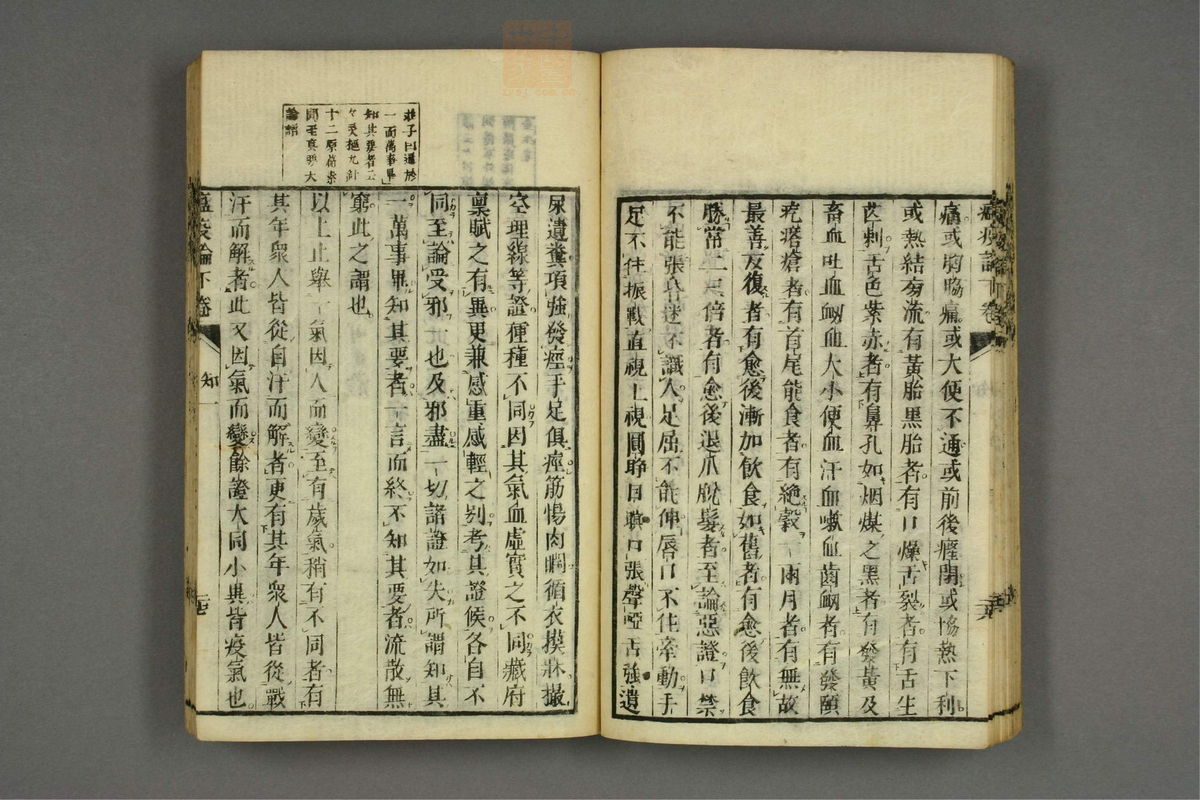 痛或胸脇痛或大便不通或前後癃閉或恊熱下利
或熱結旁流有黃胎黑胎者有口燥舌裂者有舌生
芒刺舌色紫赤者有鼻孔如烟煤之黑者有發黃及
畜血吐血衂血大小便血汗血嗽血齒衂者有發頤
疙瘩瘡者有首尾能食者有絶穀一兩月者有無故
最善反復者有愈後漸加飲食如舊者有愈後飲食
勝常二三倍者有愈後退爪脫髮者至論惡證口禁
不能張昏迷不識人足屈不能伸唇口不住牽動手
足不住振戰直視上視圓睁目瞋口張聲啞舌強遺
尿遺糞項強發痙手足俱痙筋惕肉瞤循衣摸牀撮
空理線等證種種不同因其氣血虛實之不同臟府
稟賦之有異更兼感重感輕之别考其證候各自不
同至論受邪一也及邪盡一切諸證如失所謂知其
一萬事畢知其要者一言而終不知其要者流散無
窮此之謂也
以上止舉一氣因人而變至有歲氣稍有不同者有
其年衆人皆從自汗而解者更有其年衆人皆從戰
汗而解者此又因氣而變餘證大同小異皆疫氣也
瘟疫論下卷
知一
莊子曰通於
一而萬事畢
知其要者云
十二原篇素
問至真要大
論語